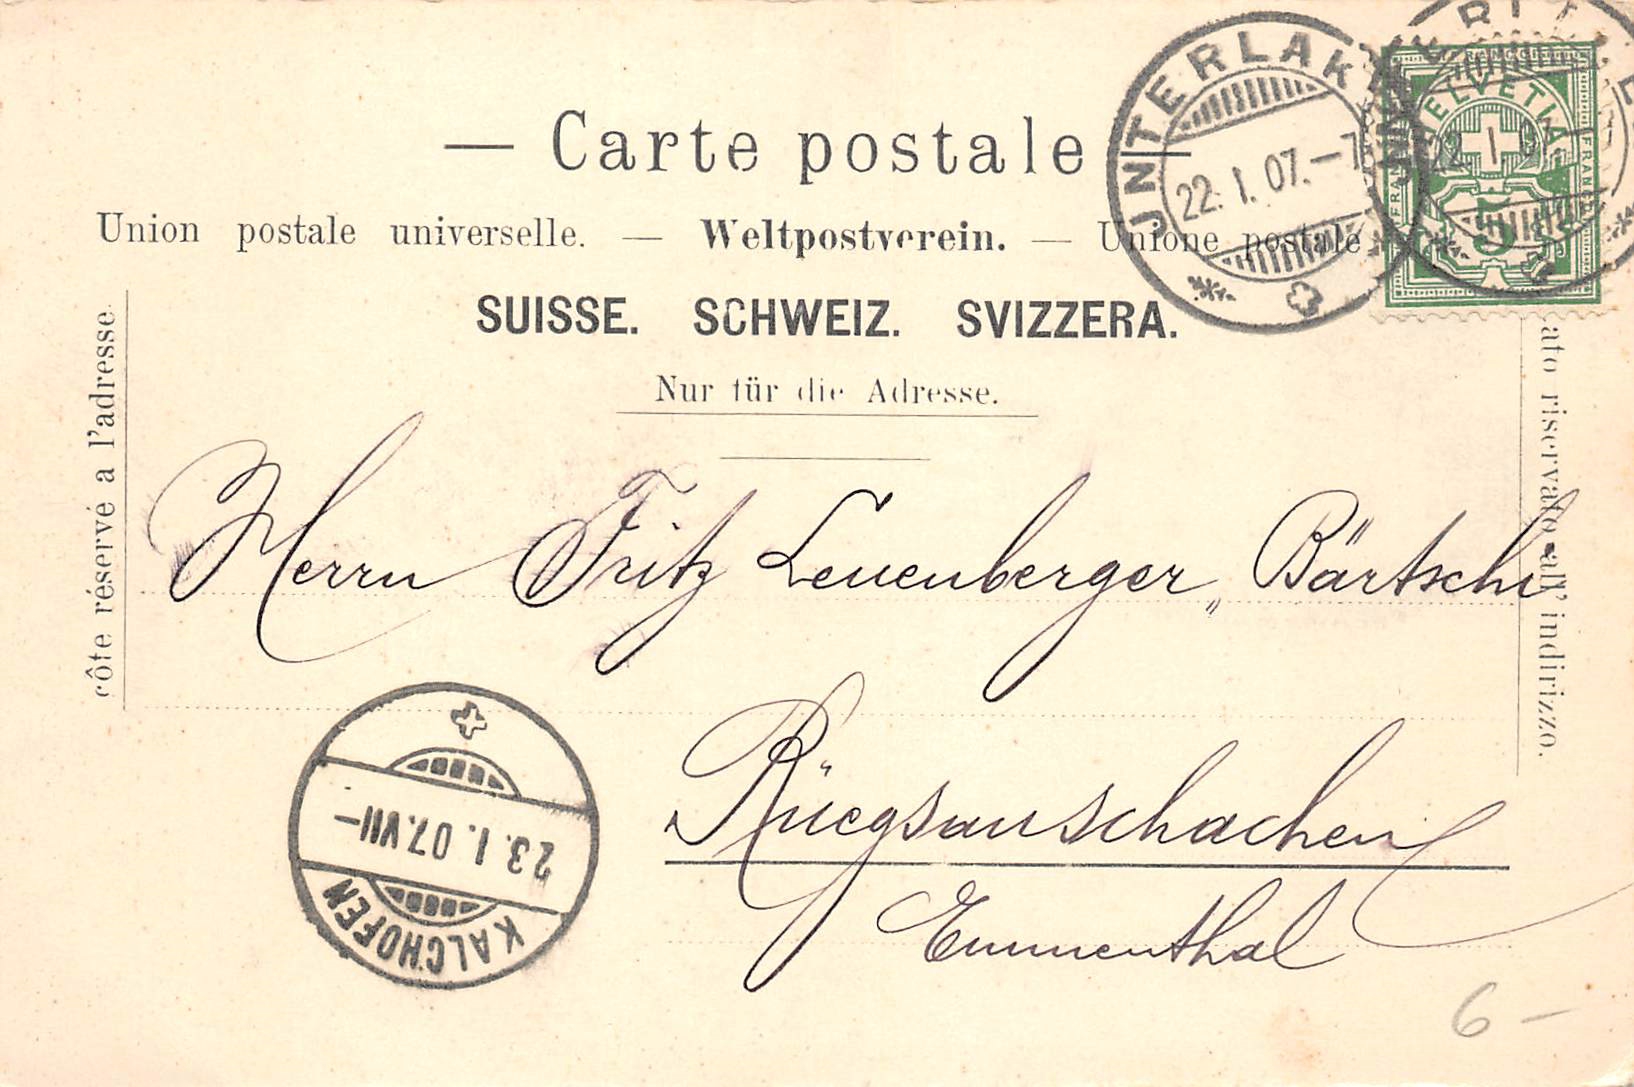 — Carte postale —
Union postale universelle. — Weltpostverein. — Unione postale
SUISSE. SCHWEIZ. SVIZZERA.
Nur für die Adresse.
côte réservé a l'adresse.
ato riservato all' indirizzo.
JNTERLAKEN
22. I. 07. – 7
HELVETIA
FRANCO
FRANCO
5
22 I 07
Herrn Fritz Leuenberger „ Bärtschi
Rüegsauschachen
Emmenthal
23. I. 07. VII –
KALCHOFEN
6 –